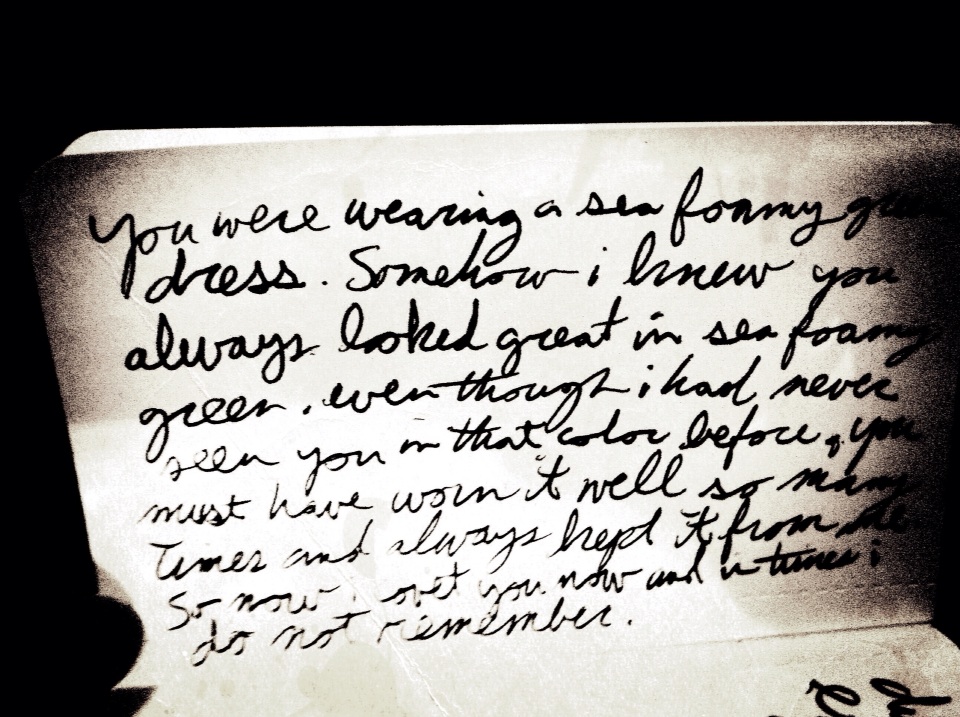 You were wearing a sea foamy green
dress. Somehow i knew you
always looked great in sea foamy
green. even though i had never
seen you in that color before, you
must have worn it well so many
times and always kept it from me
So now i covet you now and in times i
do not remember.